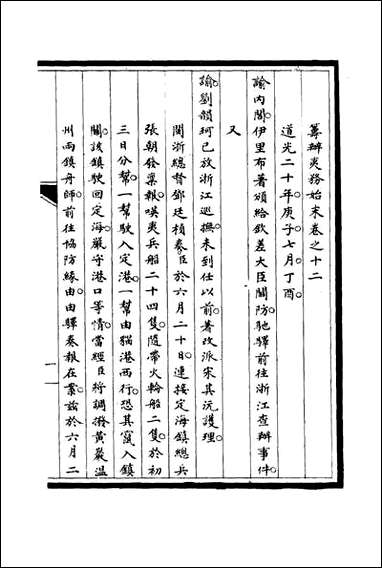 籌辦夷務始末卷之十二
道光二十年庚子七月丁酉。
諭內閣。伊里布著頒給欽差大臣關防。馳驛前往浙江查辦事件。
又
諭劉韻珂已放浙江巡撫。未到任以前。著改派宋其沅護理。
閩浙總督鄧廷楨奏。臣於六月二十日。連接定海鎮總兵
張朝發稟報。暎夷兵船二十四隻。隨帶火輪船二隻。於初
三日分幫。一幫駛入定港。一幫由猫港西行。恐其竄入鎮
關。該鎮駛回定海。嚴守港口等情。當經臣將調撥黃巖溫
州兩鎮舟師。前往協防緣由。由驛奏報在案。茲於六月二